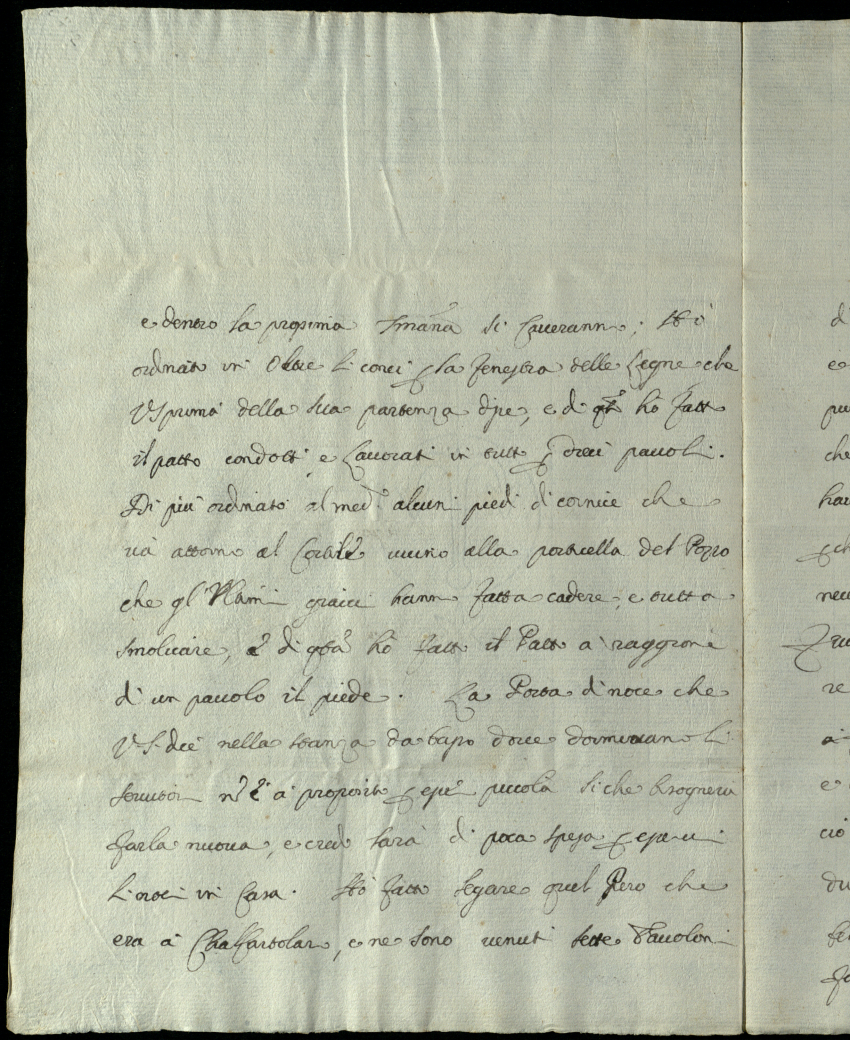 e dentro la prosima Smana si Caveranno; Hò
ordinato in Oltre li conci p la fenestra delle Legne che
VS prima della sua partenza dise, e di qto hò fatto
il patto condotti e Lavorati in tutto p dieci pauoli.
Di più ordinato al med.o alcuni piedi di cornice che
và attorno al Cortile vicino alla porticella del Pozzo
che gl' hanno fatta cadere, e tutta
smolicare, e di qsta hò fatto il Patto a raggione
di un pauolo il piede. La Porta di noce che
VS. dice nella stanza da Capo dove dormivano li
servitori n è à proposito p eser piccola si che bisogneria
farla nuova, e credo sarà di poca spesa p eserci
li noci in Casa. Hò fatto segare quel Pero che
era à , e ne sono venuti sette Tavoloni
d
e
pu
che
hau
p ch
neu
re
a
e
ciò
du